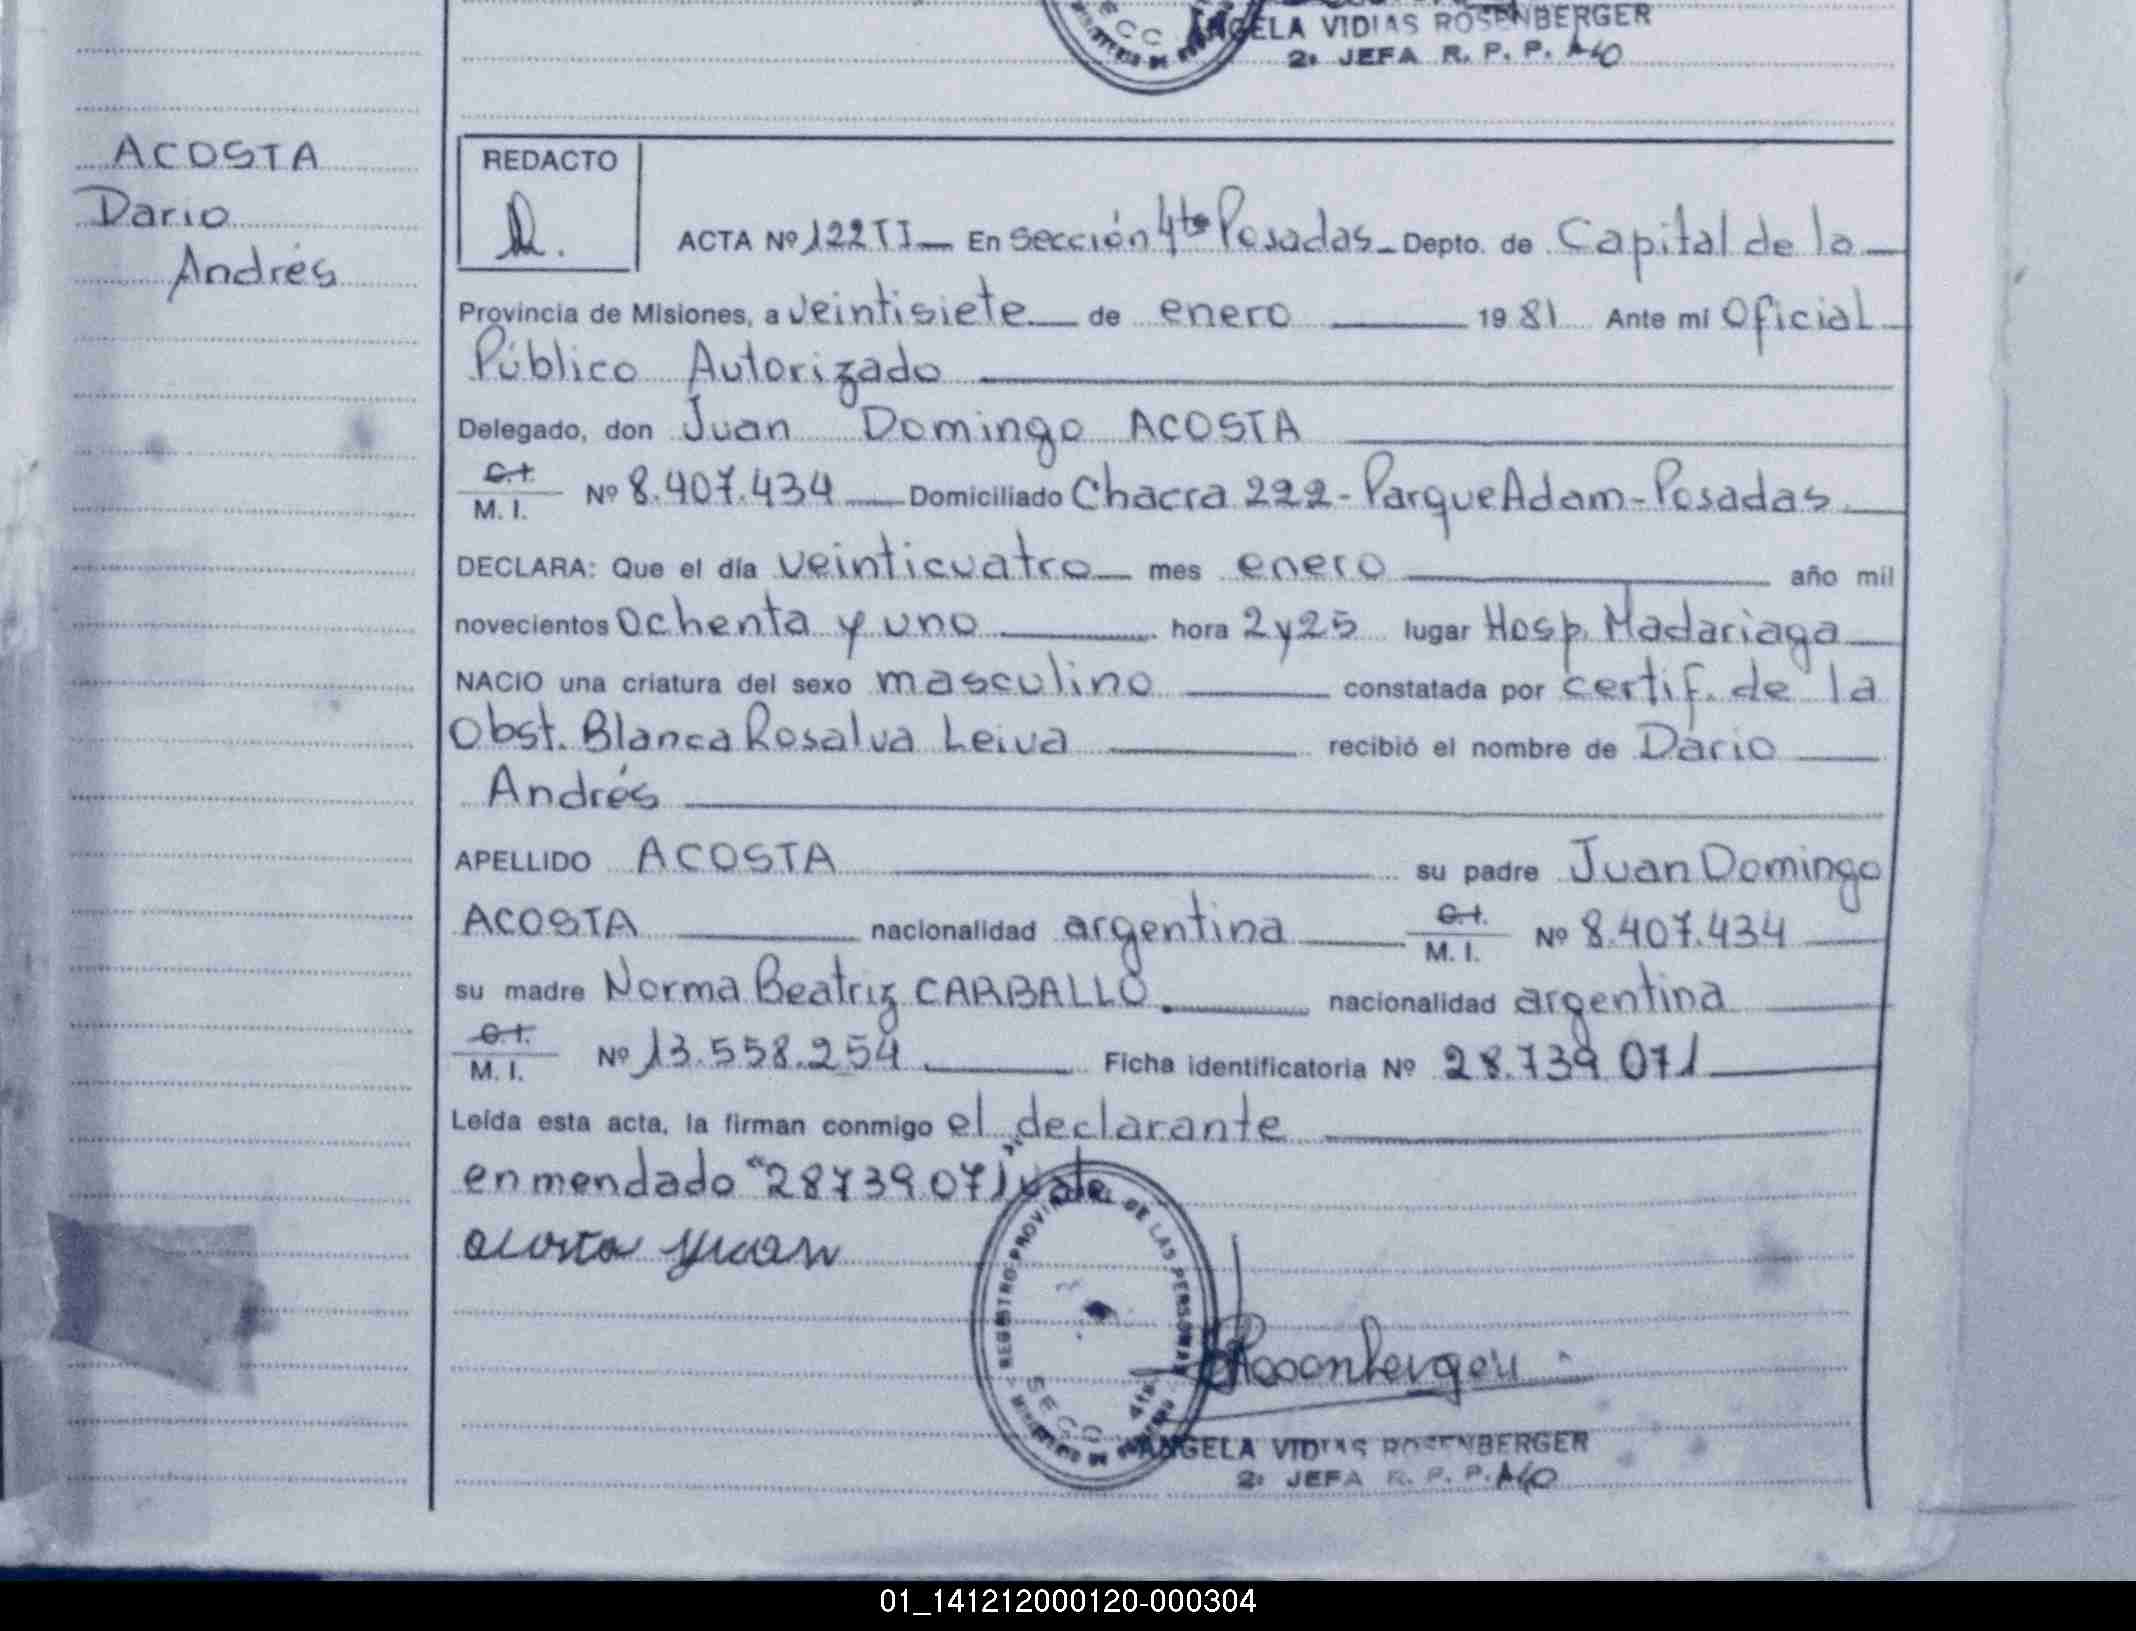 ANGELA VIDIAS ROSENBERGER
2º JEFA R. P. P.
ACOSTA
Dario
Andrés
REDACTO
ACTA Nº 122 TI En Sección 4ta Posadas Depto. de Capital de la
Provincia de Misiones, a veintisiete de enero 1981 Ante mi Oficial
Público Autorizado
Delegado, don Juan Domingo ACOSTA
C.I.
M. I. Nº 8.407.434 Domiciliado Chacra 222 - Parque Adam - Posadas
DECLARA: Que el día veinticuatro mes enero año mil
novecientos ochenta y uno hora 2 y 25 lugar Hosp. Madariaga
NACIO una criatura del sexo masculino constatada por certif. de la
Obst. Blanca Rosalva Leiva recibió el nombre de Dario
Andrés
APELLIDO ACOSTA su padre Juan Domingo
ACOSTA nacionalidad argentina C.I. M. I. Nº 8.407.434
su madre Norma Beatriz CARBALLO nacionalidad argentina
C.I.
M. I. Nº 13.558.254 Ficha identificatoria Nº 28.739.071
Leída esta acta, la firman conmigo el declarante
enmendado "28739071" vale
acosta juan
REGISTRO PROVINCIAL DE LAS PERSONAS
SECC 4ta.
Rosenberger
ANGELA VIDIAS ROSENBERGER
2º JEFA R. P. P.
01_141212000120-000304